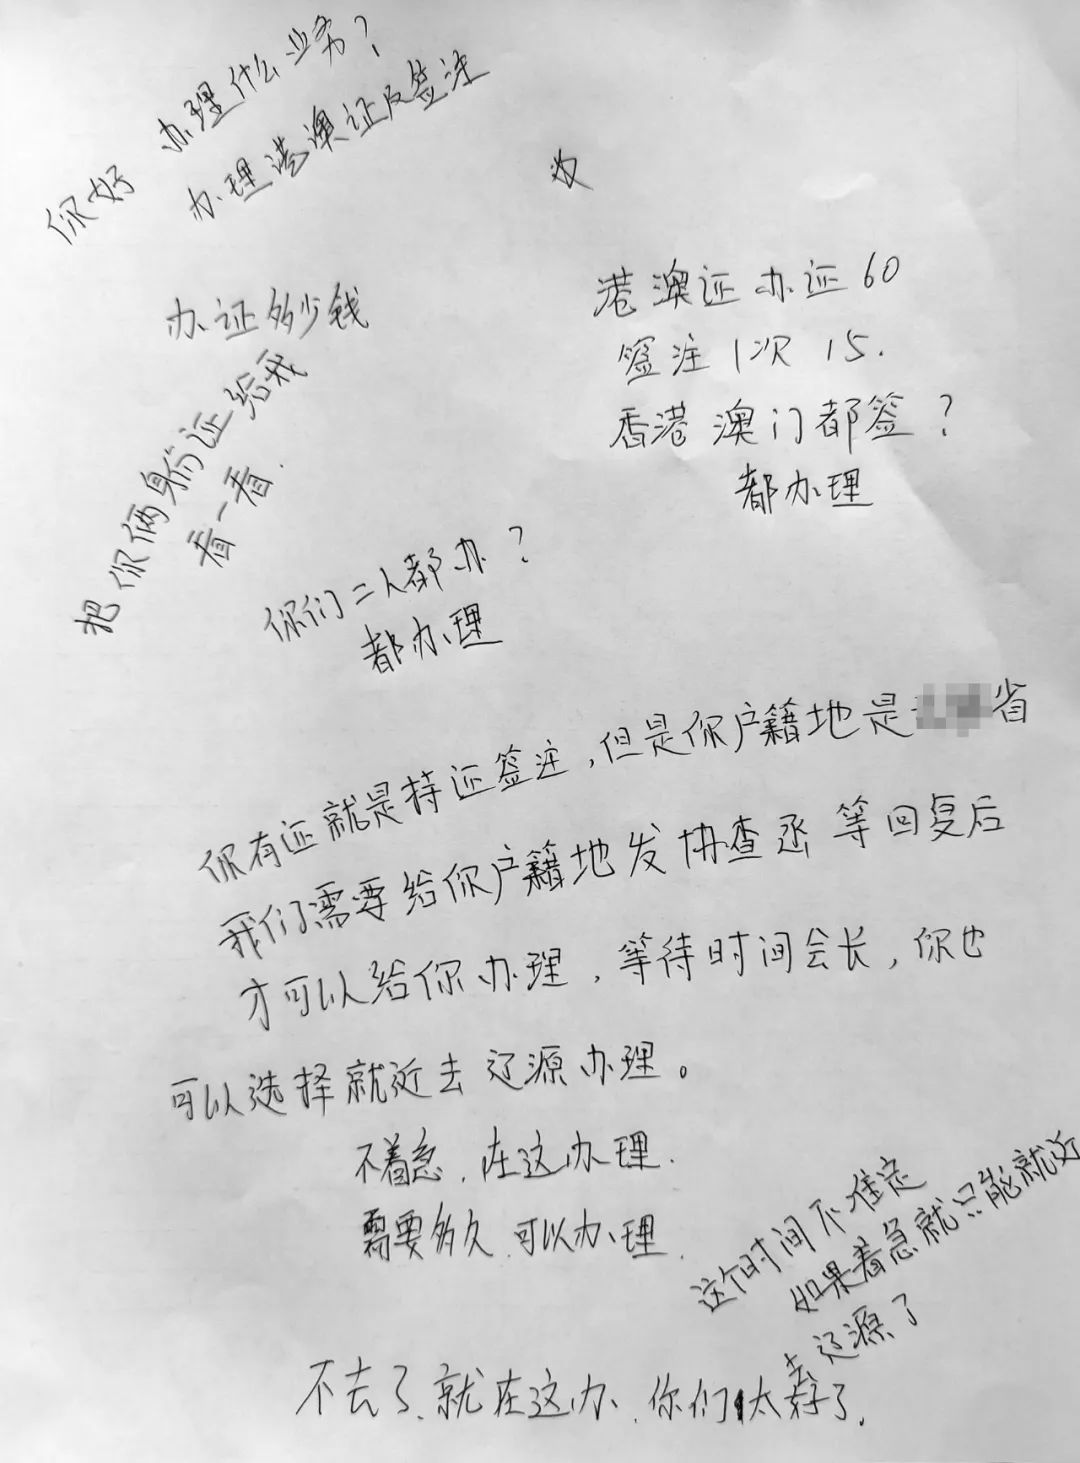 你好 办理什么业务？
办理港澳证及签注
办证多少钱
港澳证办证60
签注1次 15.
香港澳门都签？
都办理
把你俩身份证给我
看一看.
你们二人都办？
都办理
你有证就是持证签注,但是你户籍地是省
我们需要给你户籍地发协查函 等回复后
才可以给你办理,等待时间会长,你也
可以选择就近去辽源办理。
不着急.在这办理.
需要多久.可以办理.
这个时间不准定
如果着急就只能就近
去辽源了
不去了.就在这办.你们太好了.